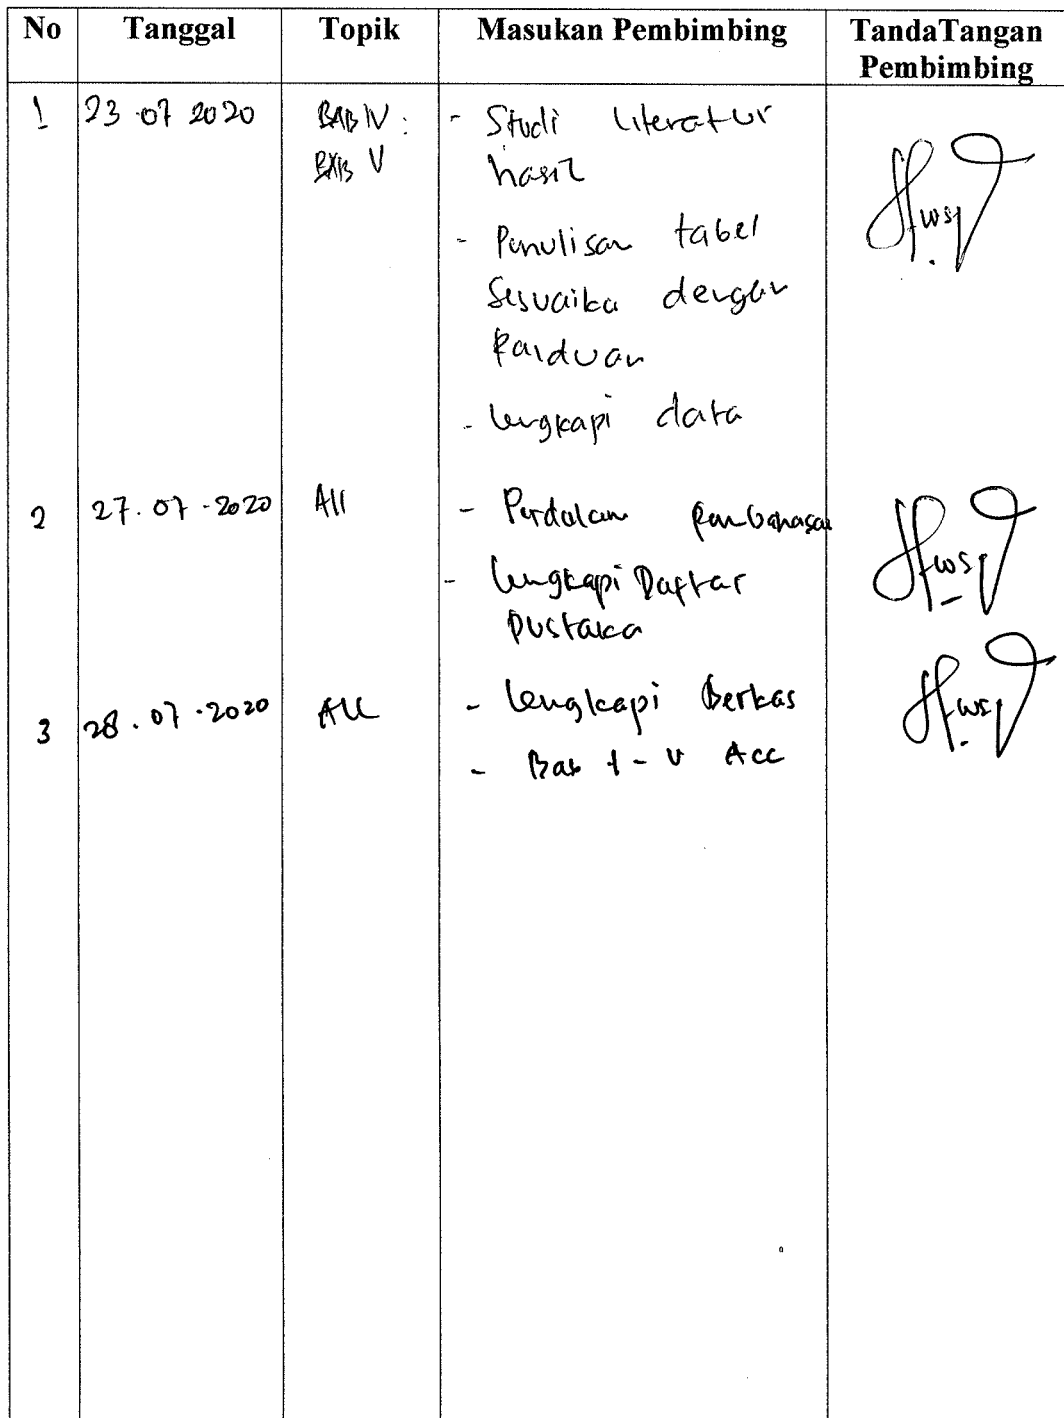 No Tanggal Topik Masukan Pembimbing TandaTangan
Pembimbing
1 23 07 2020 BAB IV : - Studi literatur
BAB V hasil
- Penulisan tabel
Sesuaika dengan
Panduan
- lengkapi data
2 27.07-2020 All - Perdalam pembahasan
- lengkapi Daftar
Pustaka
3 28.07.2020 All - lengkapi Berkas
- Bab I - V Acc